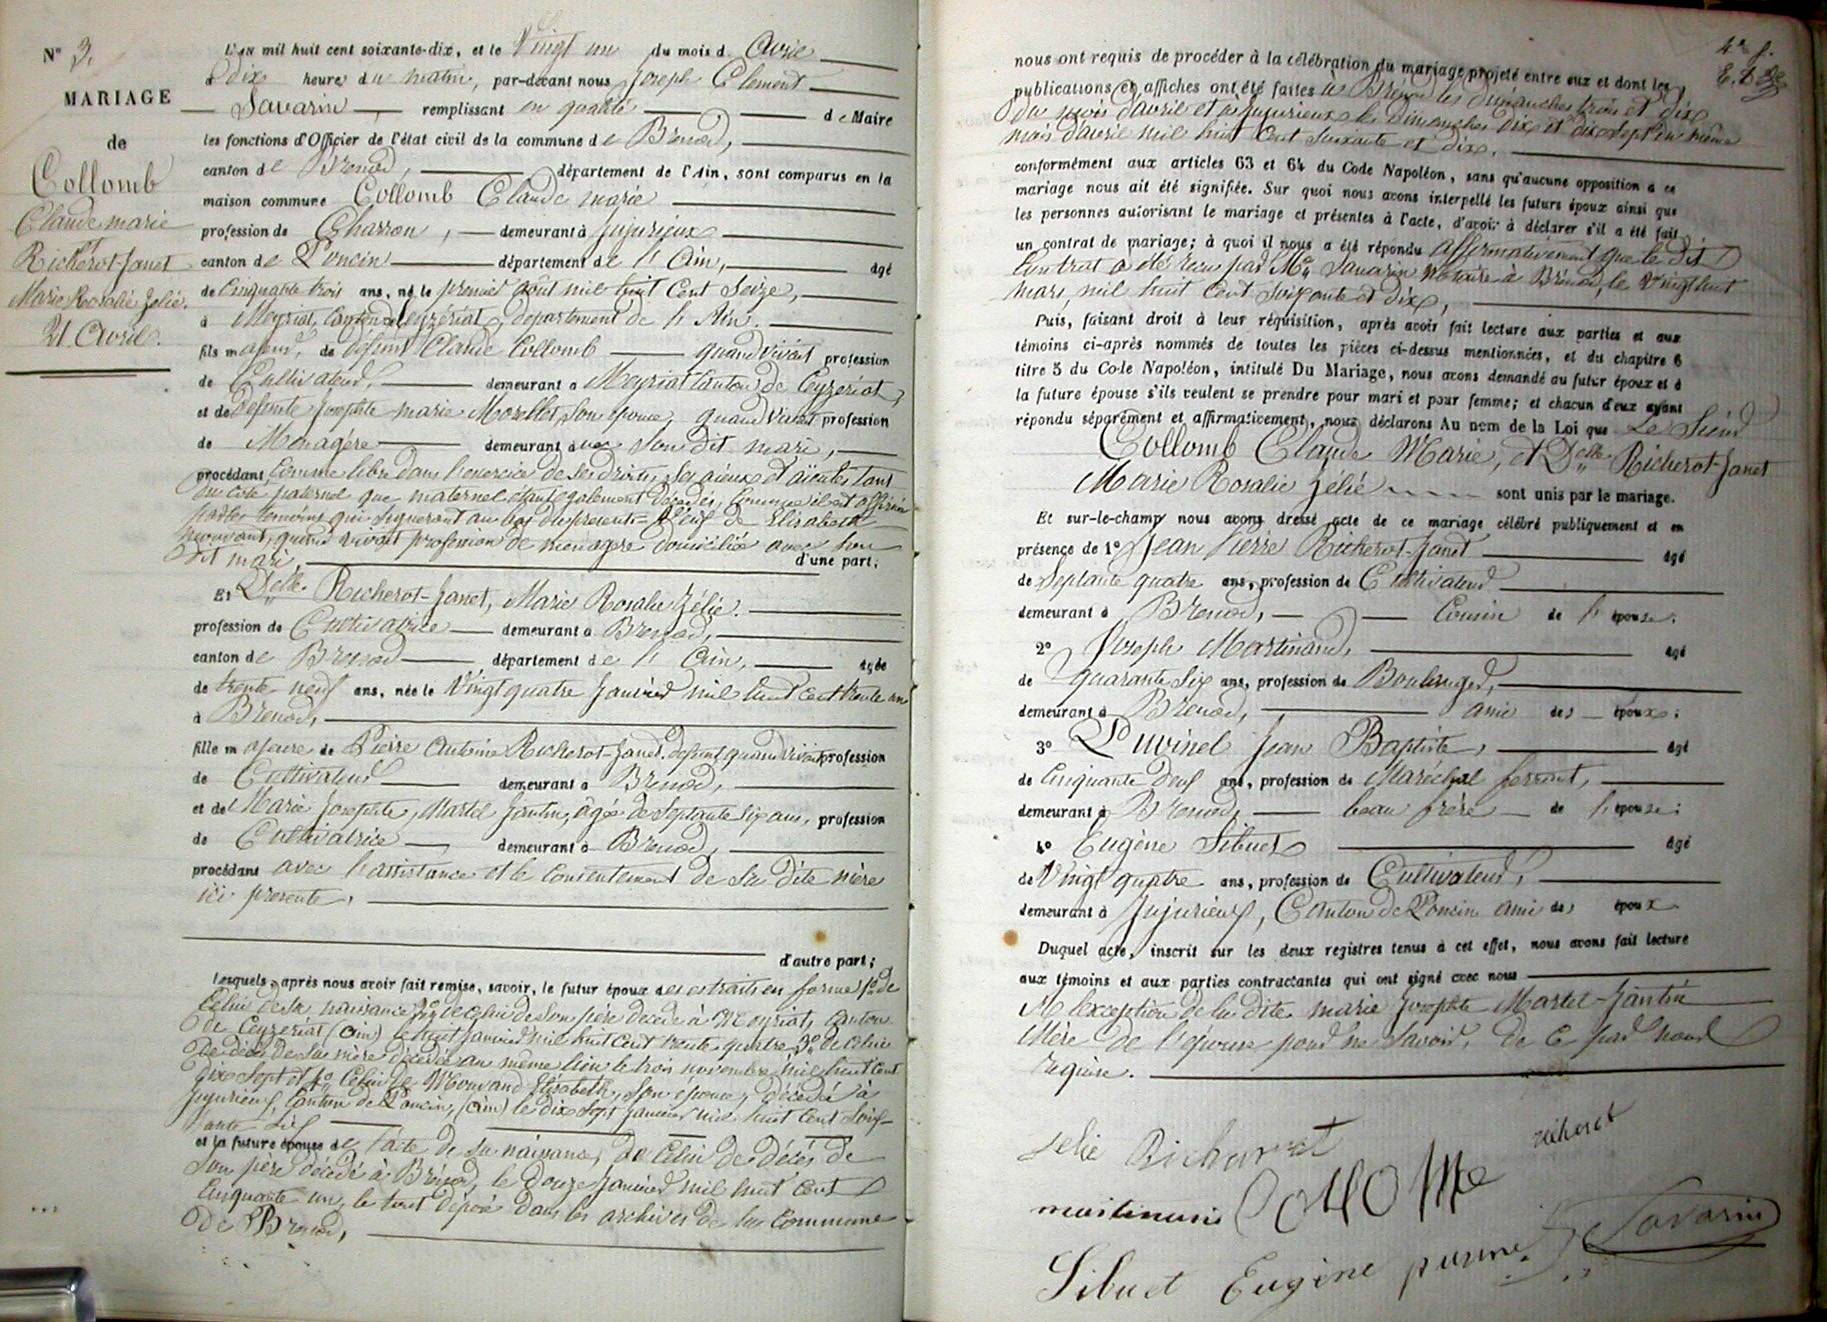 N° 3.
MARIAGE
de
Collomb
Claude marie
et
Richerot-Janet
Marie Rosalie Zelie.
21 Avril.
L'an mil huit cent soixante-dix, et le Vingt un du mois d. Avril
à dix heure du matin, par-devant nous Joseph Clement
Savarin, remplissant en qualité de Maire
les fonctions d'Officier de l'état civil de la commune de Brenod,
canton de Brenod, département de l'Ain, sont comparus en la
maison commune Collomb Claude marie
profession de Charron, demeurant à Jujurieux
canton de Poncin département de l'Ain, âgé
de Cinquante trois ans, né le premier aout mil huit Cent Seize,
à Meyriat, Canton de Ceyzeriat, departement de l'Ain.
fils majeur, de defunt Claude Collomb quand vivait profession
de Cultivateur, demeurant à Meyriat Canton de Ceyzeriat,
et de defunte Josephte marie Morellet, Son epouse, quand vivait profession
de Menagère demeurant avec son dit mari,
procédant Comme libre dans l'exercice de ses droits, Ses aïeux et aïeules tant
du coté paternel que maternel etant egalement decedés, Comme il est affirmé
par les temoins qui signeront au bas du présent= Veuf de Elisabeth
mouvant, quand vivait profession de menagère domiciliée avec son
dit mari, d'une part;
Et Delle. Richerot-Janet, Marie Rosalie Zélie.
profession de Cultivatrice demeurant à Brenod,
canton de Brenod département de l'Ain, âgée
de trente neuf ans, née le Vingt quatre Janvier mil huit cent trente un
à Brenod,
fille majeure de Pierre Antoine Richerot-Janet, defunt, quand vivait profession
de Cultivateur demeurant à Brenod,
et de Marie Josephte, Martel Jantin, âgée de Septante Six ans, profession
de Cultivatrice demeurant à Brenod,
procédant avec l'assistance et le Consentement de Sa dite mère
ici presente,
d'autre part;
Lesquels, après nous avoir fait remise, savoir, le futur époux des extraits en forme 1° de
Celui de sa naissance 2° de celui de Son père décédé à Meyriat, Canton
de Ceyzeriat (Ain) le huit Janvier mil huit Cent trente quatre, 3° de Celui
de décès de Sa mère décédée au même lieu le trois novembre mil huit Cent
dix Sept et 4° Celui de Mouvand Elisabeth, Son epouse, décédée à
Jujurieux, Canton de Poncin, (Ain) le dix Sept Janvier mil huit Cent Soix-
ante Six
et la future épouse de l'acte de sa naissance, de Celui de décès de
Son père décédé à Brénod, le douze Janvier mil huit Cent
Cinquante un, le tout déposé dans les archives de la Commune
de Brenod,
nous ont requis de procéder à la célébration du mariage projeté entre eux et dont les
publications et affiches ont été faites à Brenod les dimanches trois et dix
du mois d'avril et à Jujurieux les dimanches dix et dix sept du même
mois d'avril mil huit Cent Soixante et dix,
conformément aux articles 63 et 64 du Code Napoléon, sans qu'aucune opposition à ce
mariage nous ait été signifiée. Sur quoi nous avons interpellé les futurs époux ainsi que
les personnes autorisant le mariage et présentes à l'acte, d'avoir à déclarer s'il a été fait
un contrat de mariage; à quoi il nous a été répondu affirmativement que le dit
Contrat a été recu par Me. Savarin Notaire à Brénod, le Vingt huit
mars, mil huit Cent Soixante et dix,
Puis, faisant droit à leur réquisition, après avoir fait lecture aux parties et aux
témoins ci-après nommés de toutes les pièces ci-dessus mentionnées, et du chapitre 6
titre 5 du Code Napoléon, intitulé Du Mariage, nous avons demandé au futur époux et à
la future épouse s'ils veulent se prendre pour mari et pour femme; et chacun d'eux ayant
répondu séparément et affirmativement, nous déclarons Au nom de la Loi que Le Sieur
Collomb Claude Marie, et Delle. Richerot-Janet
Marie Rosalie Zélie sont unis par le mariage.
Et sur-le-champ nous avons dressé acte de ce mariage célébré publiquement et en
présence de 1° Jean Pierre Richerot-Janet âgé
de Septante quatre ans, profession de Cultivateur
demeurant à Brenod, Cousin de l'épouse;
2° Joseph Martinand, âgé
de quarante Six ans, profession de Boulanger,
demeurant à Brenod, ami des époux;
3° Puvinel Jean Baptiste, âgé
de Cinquante Deux ans, profession de Maréchal ferrant,
demeurant à Brenod, beau frère de l'épouse;
4° Eugène Sibuet âgé
de Vingt quatre ans, profession de Cultivateur,
demeurant à Jujurieux, Canton de Poncin ami des époux
Duquel acte, inscrit sur les deux registres tenus à cet effet, nous avons fait lecture
aux témoins et aux parties contractantes qui ont signé avec nous
A l'exception de la dite marie Josephte Martel-Jantin
Mère de l'épouse pour ne savoir, De Ce par nous
requise.
zelie Richerot
richerot
martinand Collomb
Savarin
Sibuet Eugène